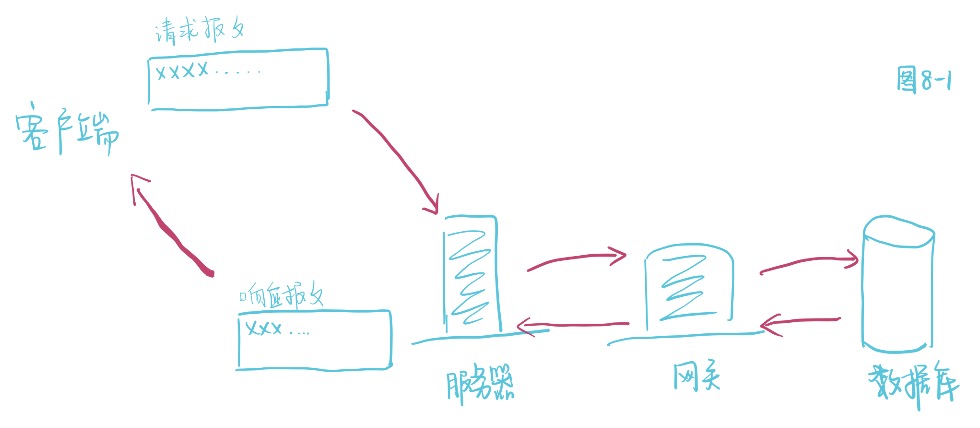 请求报文
xxxx......
图8-1
客户端
响应报文
xxx....
服务器
网关
数据库